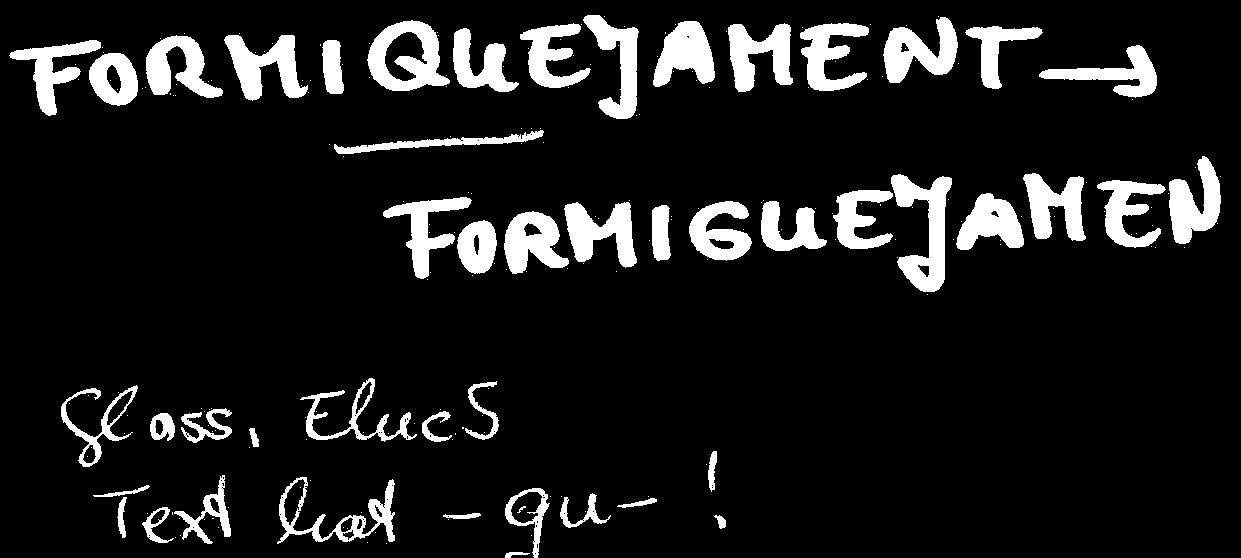 FORMIQUEJAMENT →
FORMIGUEJAMEN
Gloss. ElucS
Text hat -gu- !